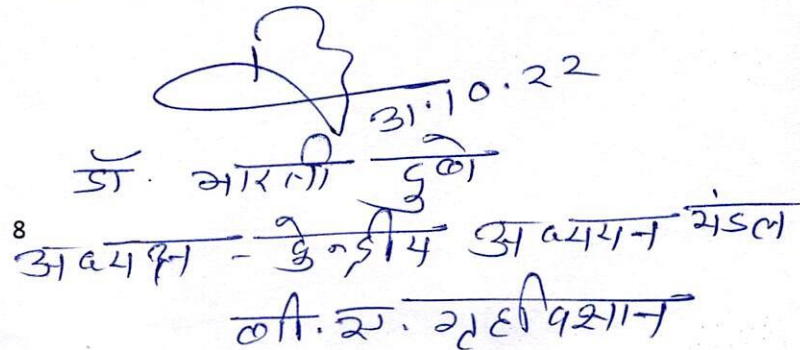 31.10.22
डॉ. भारती दुबे
8
अध्यक्ष - केन्द्रीय अध्ययन मंडल
बी.ए. गृहविज्ञान